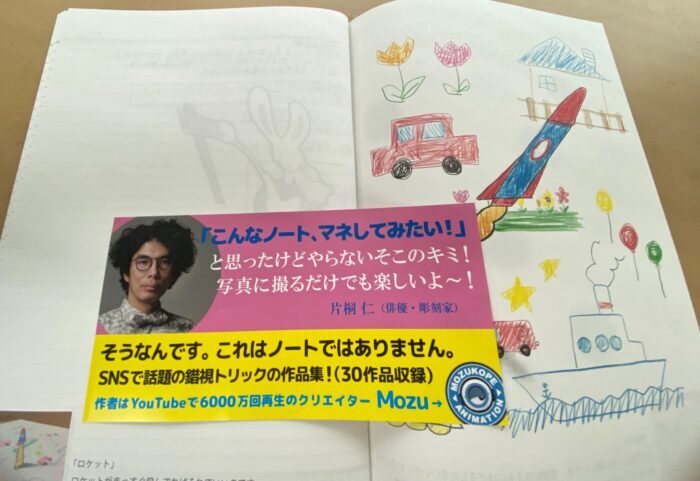 「こんなノート、マネしてみたい！」
と思ったけどやらないそこのキミ！
写真に撮るだけでも楽しいよ〜！
片桐 仁（俳優・彫刻家）
そうなんです。これはノートではありません。
SNSで話題の錯視トリックの作品集！(30作品収録)
作者はYouTubeで6000万回再生のクリエイター Mozu→
MOZUKOPE
ANIMATION
「ロケット」